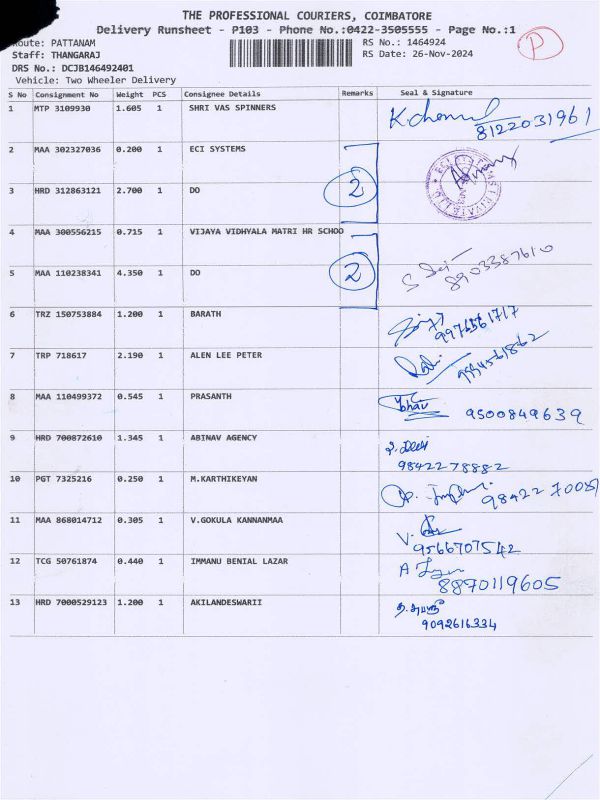 THE PROFESSIONAL COURIERS, COIMBATORE
Delivery Runsheet - P103 - Phone No.:0422-3505555 - Page No.:1
Route: PATTANAM
RS No.: 1464924
P
Staff: THANGARAJ
RS Date: 26-Nov-2024
DRS No.: DCJB146492401
Vehicle: Two Wheeler Delivery
S No Consignment No Weight PCS Consignee Details Remarks Seal & Signature
1 MTP 3109930 1.605 1 SHRI VAS SPINNERS 8122031961
2 MAA 302327036 0.200 1 ECI SYSTEMS
3 HRD 312863121 2.700 1 DO 2
4 MAA 300556215 0.715 1 VIJAYA VIDHYALA MATRI HR SCHOO
5 MAA 110238341 4.350 1 DO 2 8903387610
6 TRZ 150753884 1.200 1 BARATH
7 TRP 718617 2.190 1 ALEN LEE PETER
8 MAA 110499372 0.545 1 PRASANTH 9500849639
9 HRD 700872610 1.345 1 ABINAV AGENCY 9842278882
10 PGT 7325216 0.250 1 M.KARTHIKEYAN
11 MAA 868014712 0.305 1 V.GOKULA KANNANMAA 9566707542
12 TCG 50761874 0.440 1 IMMANU BENIAL LAZAR 8870119605
13 HRD 7000529123 1.200 1 AKILANDESWARII 9092616334